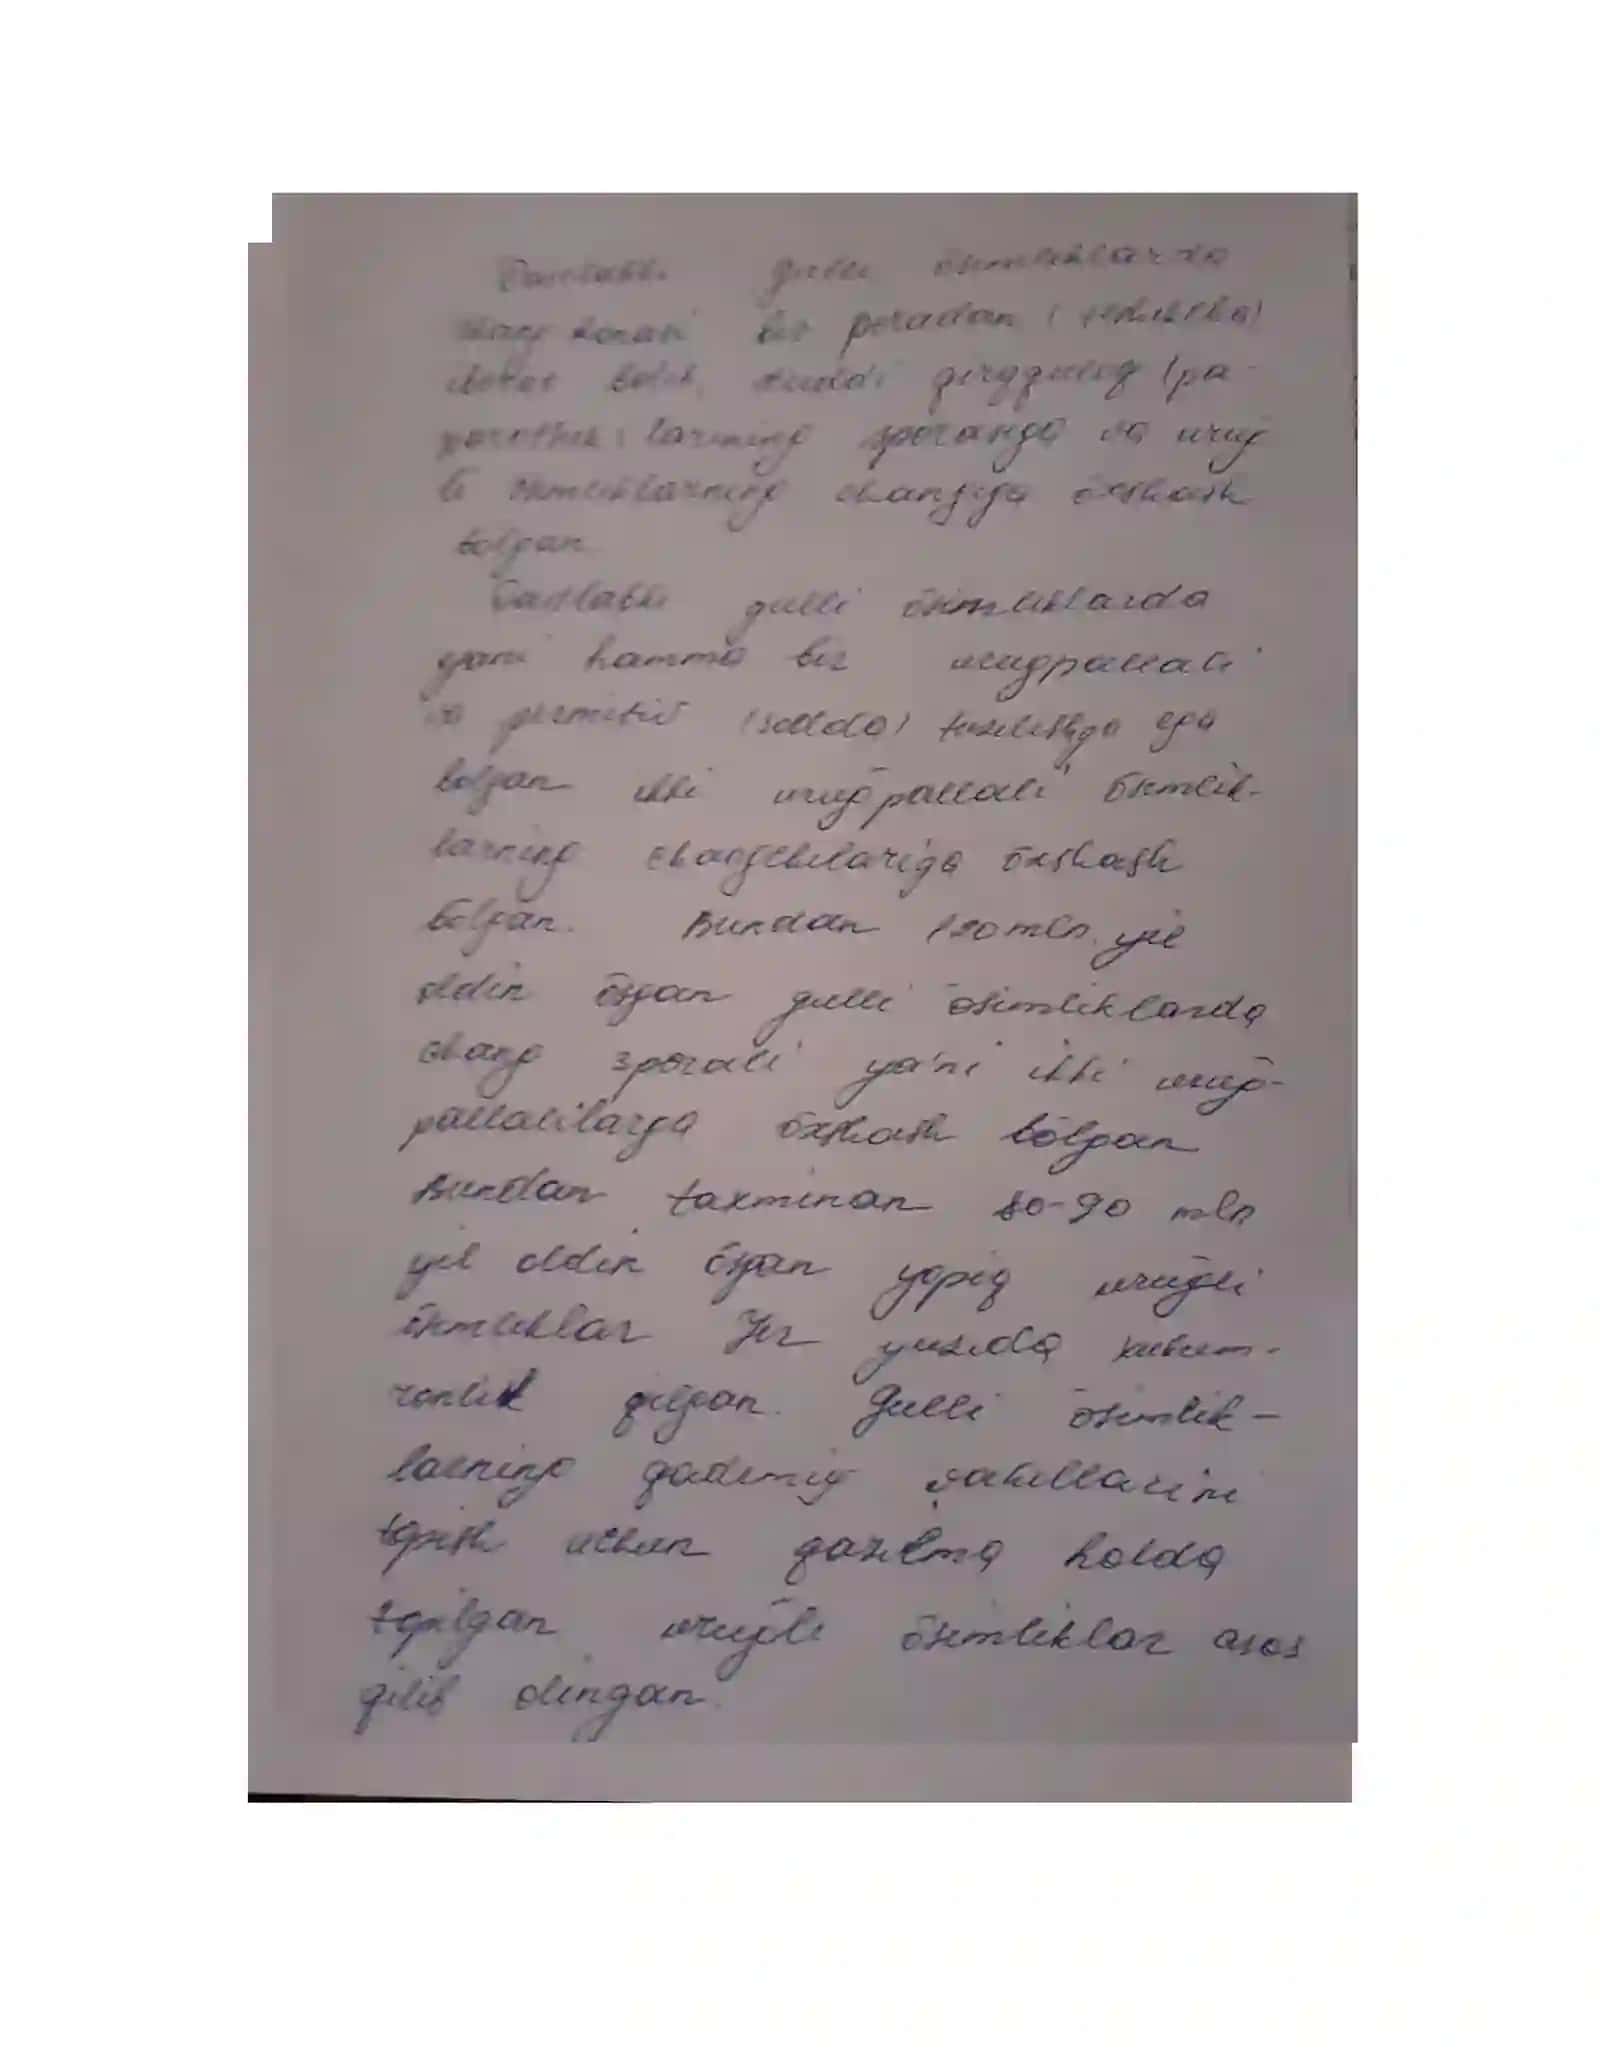 Dastlabki gulli ōsimliklarda
chang donasi bir poradan (teshikcha)
iborat bōlib, xuddi qirqquloq (pa-
porotnik) larining sporasiga va urug
li ōsimliklarning changiga ōxshash
bōlgan.
Dastlabki gulli ōsimliklarda
yani hamma bir urugpallali
va primitiv (sodda) tuzilishga ega
bolgan ikki uruḡpallali ōsimlik-
larning changchilariga ōxshash
bōlgan. Bundan 120 mln. yil
oldin ōsgan gulli ōsimliklarda
chang sporali ya'ni ikki uruḡ-
pallalilarga ōxshash bōlgan
Bundan taxminan 80-90 mln
yil oldin ōsgan yopiq uruḡli
ōsimliklar Yer yuzida hukum-
ronlik qilgan. Gulli ōsimlik-
larning qadimiy vakillarini
topish uchun qazilma holda
topilgan uruḡli ōsimliklar asos
qilib olingan.